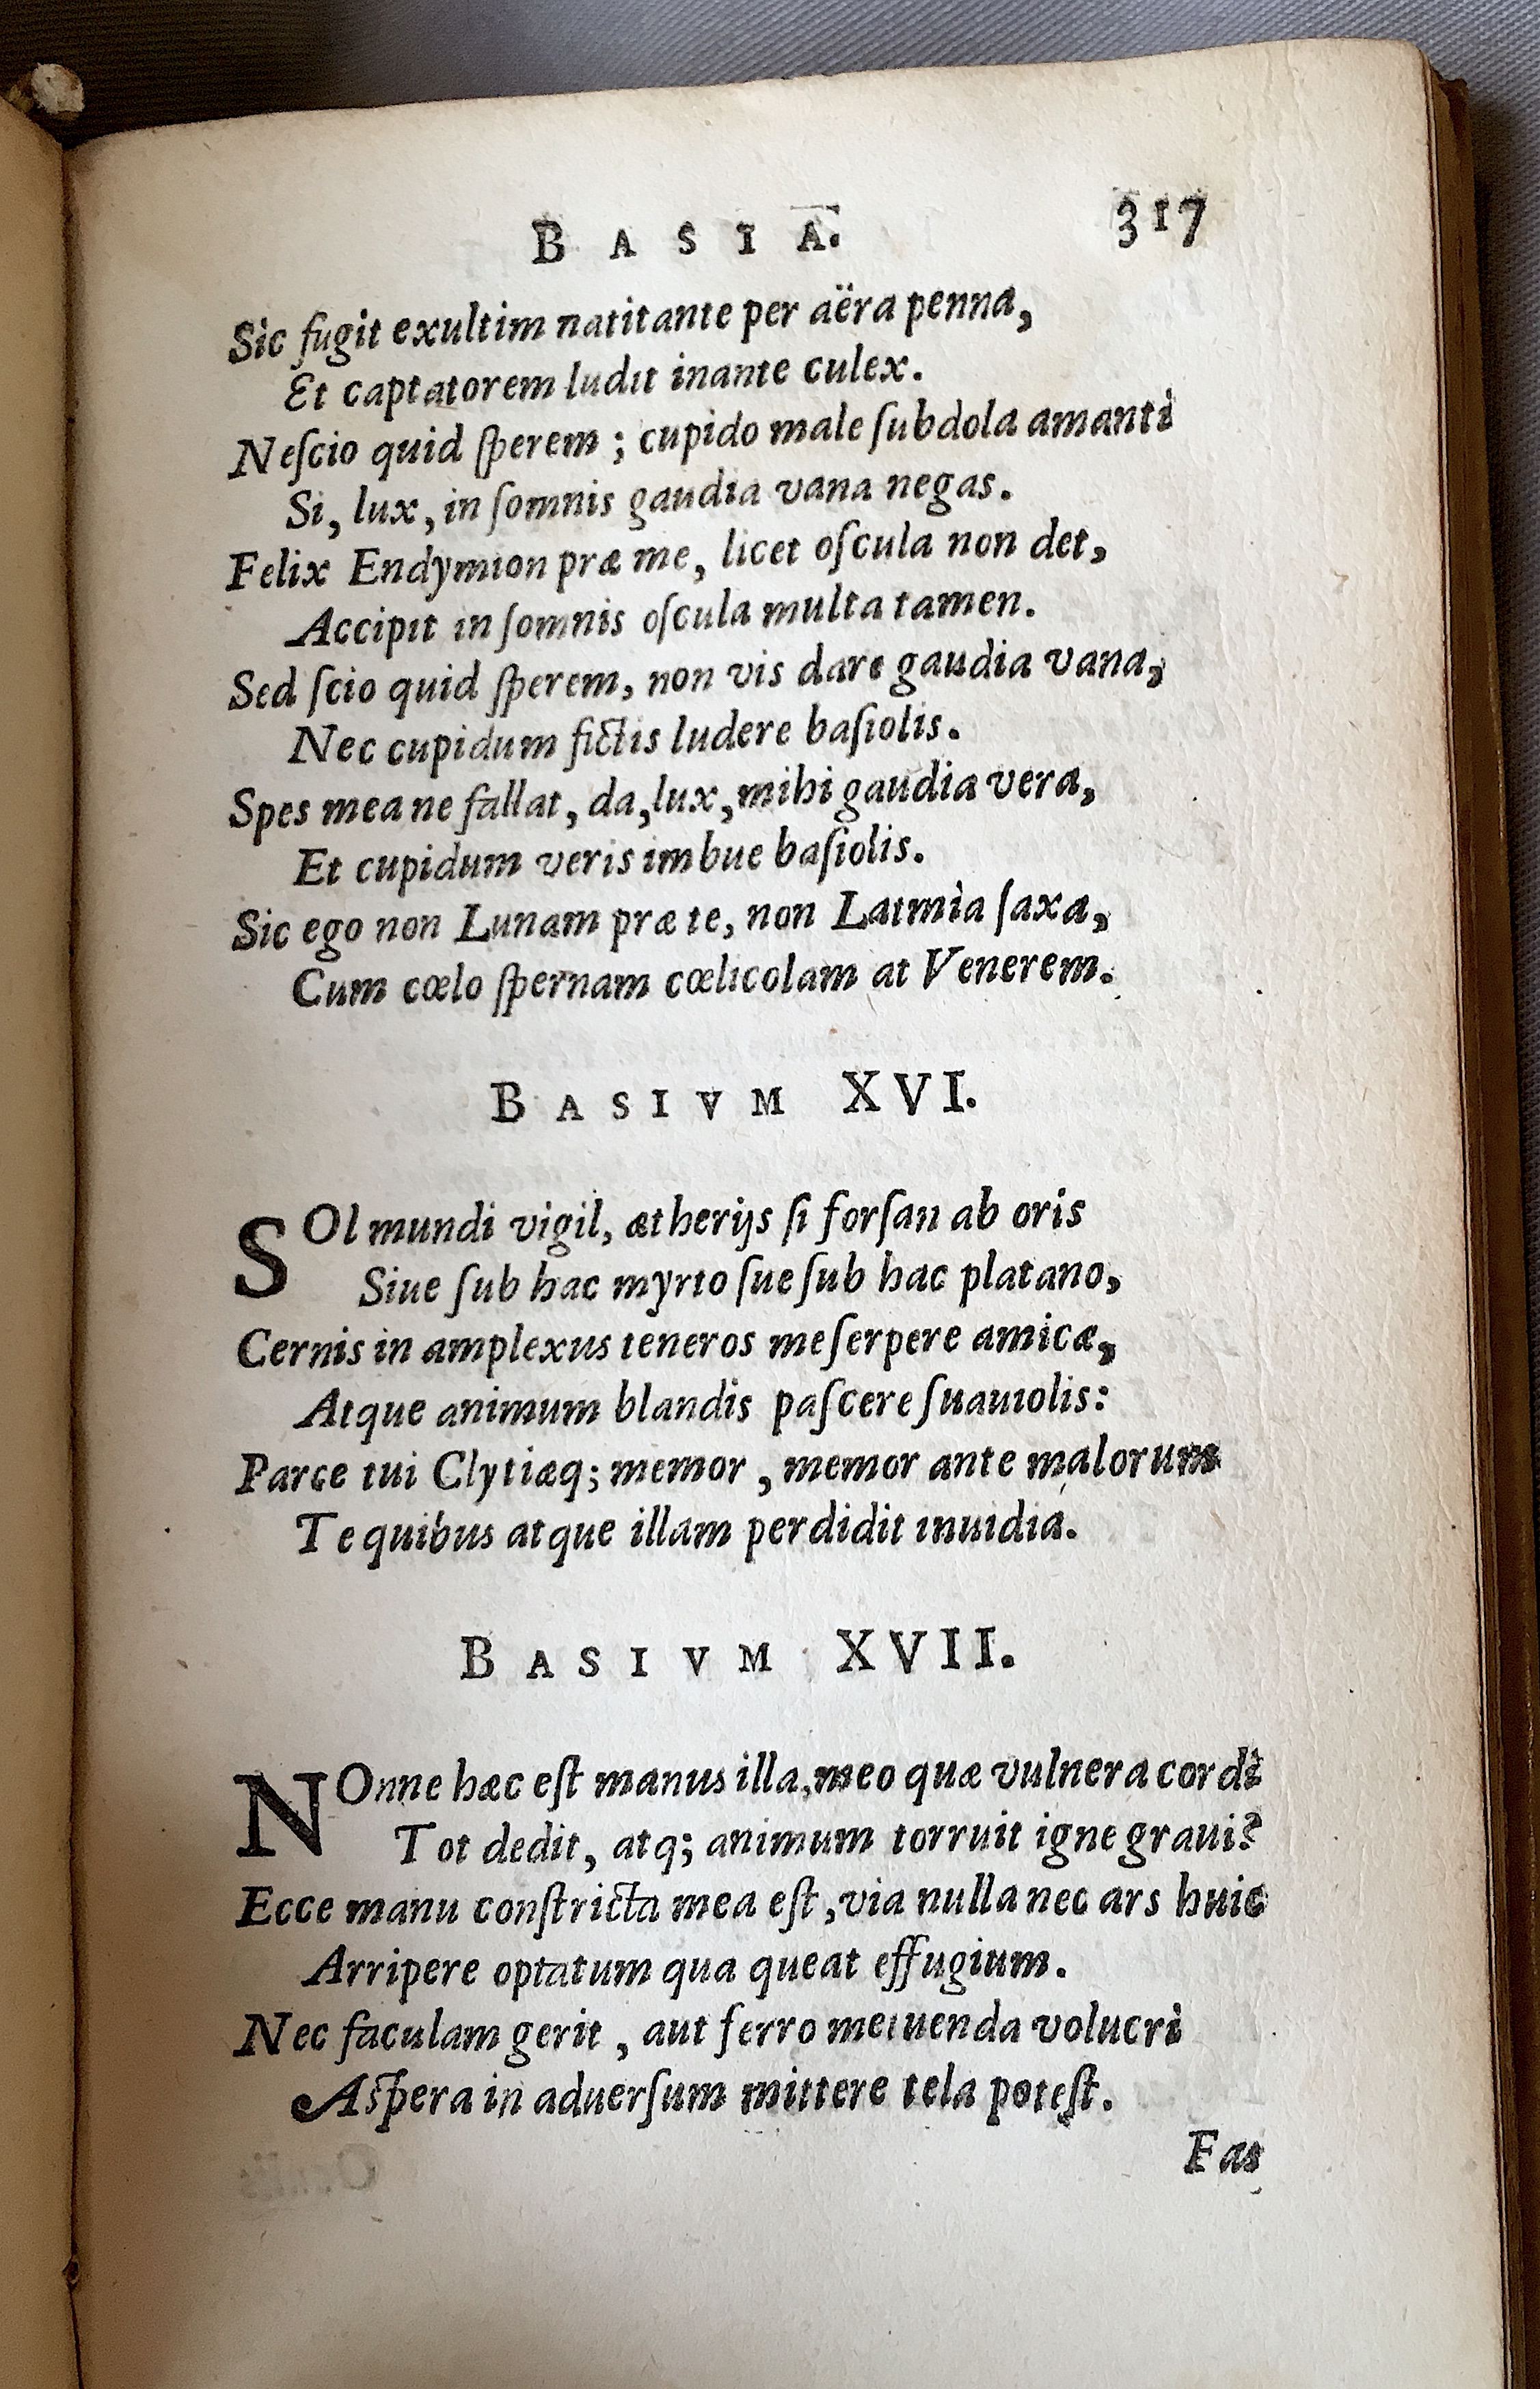 BASIA. 317
Sic fugit exultim natitante per aëra penna,
Et captatorem ludit inante culex.
Neſcio quid ſperem ; cupido male ſubdola amanti
Si, lux, in ſomnis gaudia vana negas.
Felix Endymion præ me, licet oſcula non det,
Accipit in ſomnis oſcula multa tamen.
Sed ſcio quid ſperem, non vis dare gaudia vana,
Nec cupidum fictis ludere baſiolis.
Spes mea ne fallat, da, lux, mihi gaudia vera,
Et cupidum veris imbue baſiolis.
Sic ego non Lunam præ te, non Latmia ſaxa,
Cum cœlo ſpernam cœlicolam at Venerem.
BASIVM XVI.
SOl mundi vigil, ætherijs ſi forſan ab oris
Siue ſub hac myrto ſue ſub hac platano,
Cernis in amplexus teneros me ſerpere amicæ,
Atque animum blandis paſcere ſuauiolis:
Parce tui Clytiæq; memor, memor ante malorum
Te quibus atque illam perdidit inuidia.
BASIVM XVII.
NOnne hæc eſt manus illa, meo quæ vulnera cordi
Tot dedit, atq; animum torruit igne graui?
Ecce manu conſtricta mea eſt, via nulla nec ars huic
Arripere optatum qua queat effugium.
Nec faculam gerit, aut ferro metuenda volucri
Aſpera in aduerſum mittere tela poteſt.
Fas